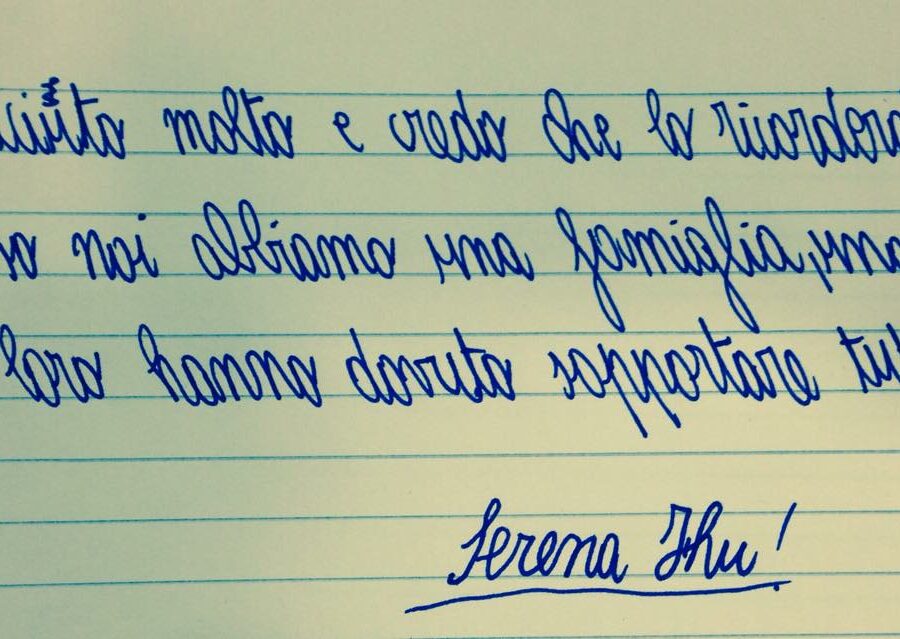 molto e credo che la ricorderò
noi abbiamo una famiglia, una
loro hanno dovuto sopportare tut
Serena Jhu!